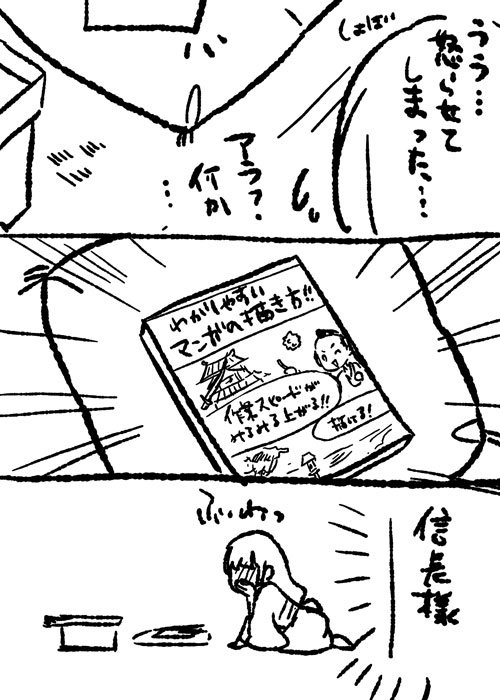 うう…
怒らせて
しまった…
しょぼい
アラ？
何か
…
わかりやすい
マンガの描き方!!
作業スピードが
みるみる上がる!!
描ける!
信長様